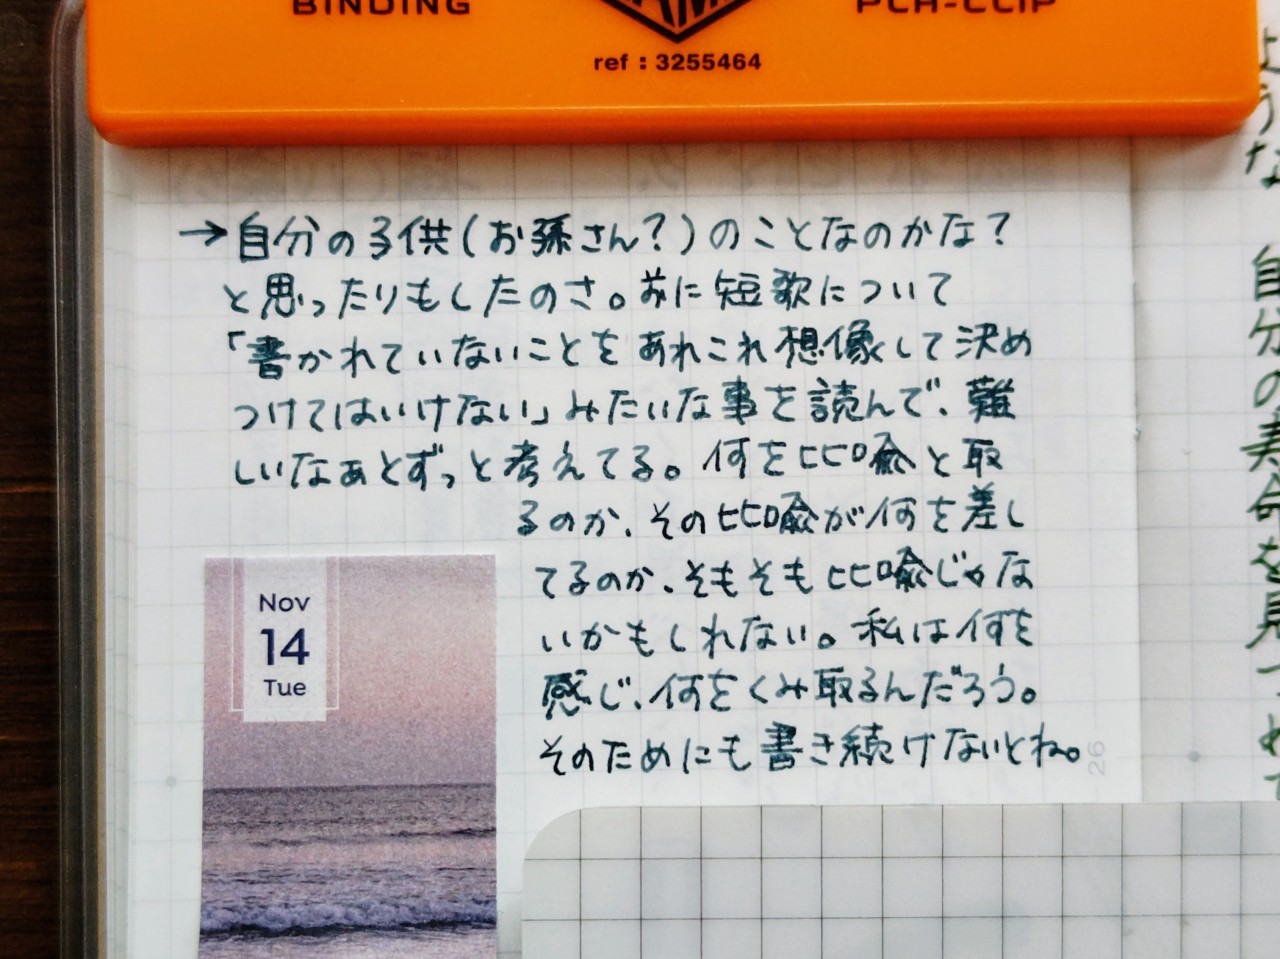 BINDING
PCH-CLIP
ref : 3255464
→自分の子供(お孫さん?)のことなのかな?
と思ったりもしたのさ。前に短歌について
「書かれていないことをあれこれ想像して決め
つけてはいけない」みたいな事を読んで、難
しいなぁとずっと考えてる。何を比喩と取
るのか、その比喩が何を差し
てるのか、そもそも比喩じゃな
いかもしれない。私は何を
感じ、何をくみ取るんだろう。
そのためにも書き続けないとね。
26
Nov
14
Tue
ような
自分の寿命を